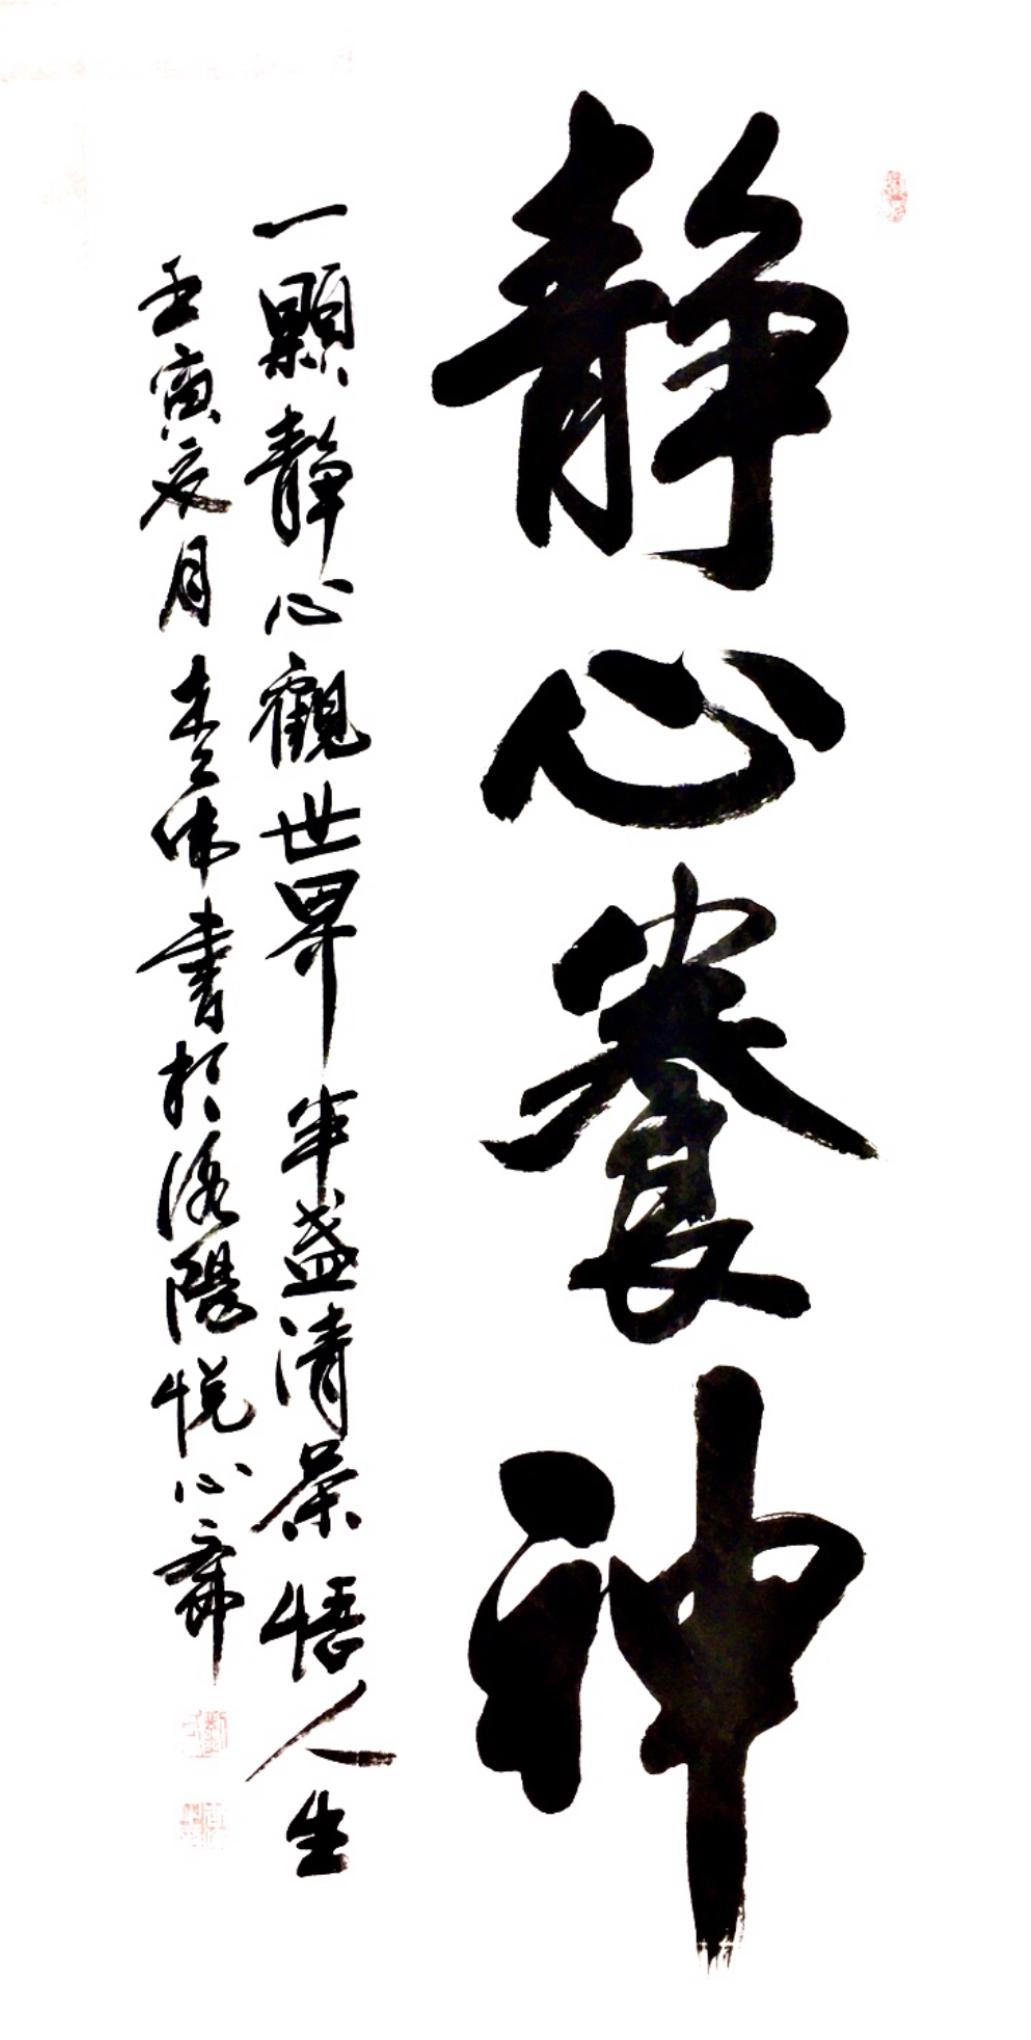 静心養神
一顆静心觀世界半盞清茶悟人生
壬寅辰月李偉書於洛陽悦心齋